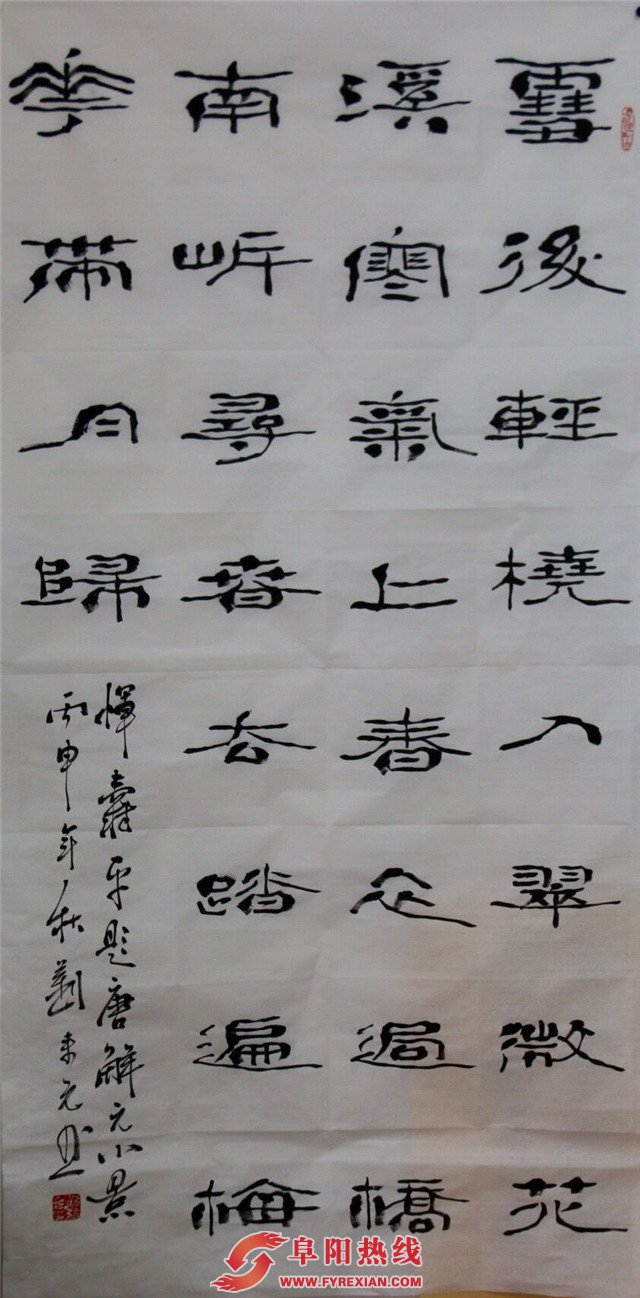 雪後輕橈入翠微花
溪寒氣上春衣過橋
南岸尋春去踏遍梅
華帶月歸
惲壽平題唐解元小景
丙申年秋劉元書
阜阳热线
WWW.FYREXIAN.COM